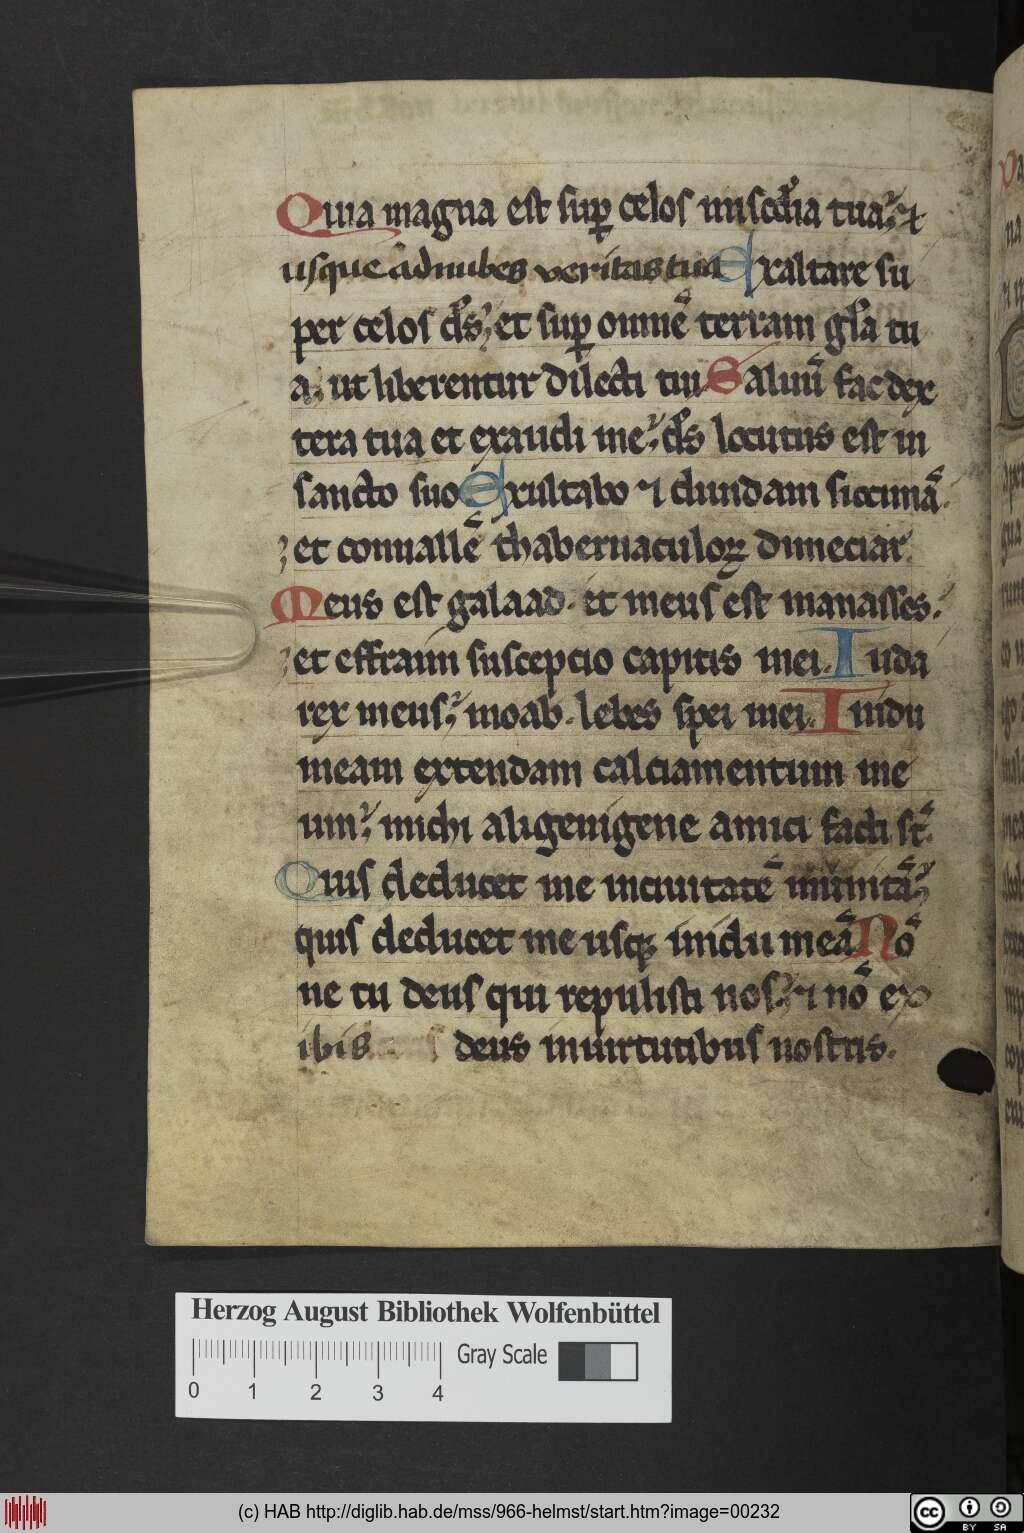 Quia magna est sup celos miscdia tua. ⁊
usque ad nubes veritas tua Exaltare su
per celos ds. et sup omnē terram gła tu
a. ut liberentur dilecti tui Saluū fac dex
tera tua et exaudi me. ds locutus est in
sancto suo Exultabo ⁊ diuidam siccimā.
et conuallē thabernaculoꝝ dimeciar.
Meus est galaad. et meus est manasses.
et effraim susceptio capitis mei. Iuda
rex meus. moab. lebes spei mei. Inidu
meam extendam calciamentum me
um. michi aligenigene amici facti st̄.
Quis deducet me inciuitatē munitā.
quis deducet me usqꝫ inidu meā Nō
ne tu deus qui repulisti nos. ⁊ nō ex
ibis deus inuirtutibus nostris.
Herzog August Bibliothek Wolfenbüttel
0 1 2 3 4 Gray Scale
(c) HAB http://diglib.hab.de/mss/966-helmst/start.htm?image=00232
cc BY SA